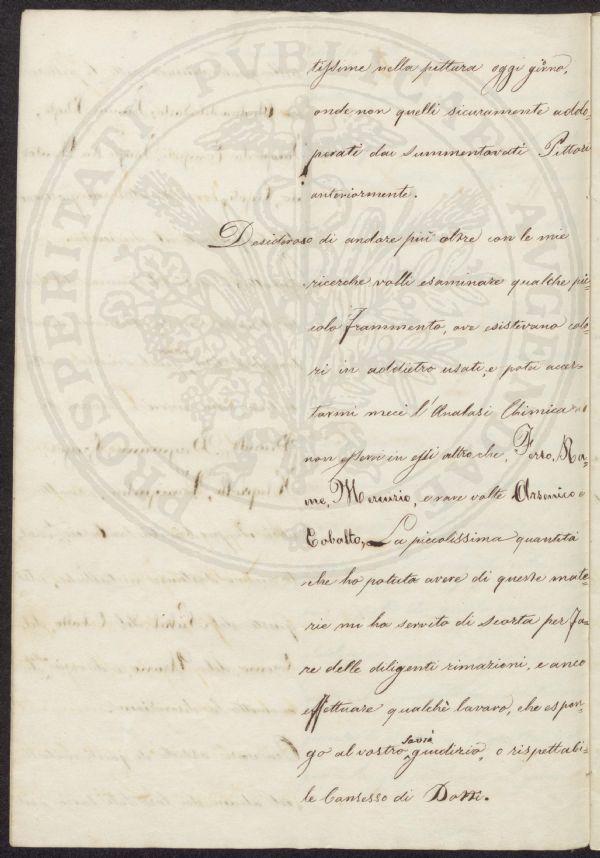 tissime nella pittura oggi giorno,
onde non quelli sicuramente addo-
perati dai summentovati Pittori
anteriormente.
Desideroso di andare più oltre con le mie
ricerche volli esaminare qualche pic
colo frammento, ove esistevano colo-
ri in addietro usati, e potei accer-
tarmi meci l'Analasi Chimica
non esservi in essi altro che, Ferro, Ra-
me, Mercurio, e rare volte Arsenico e
Cobalto, La piccolissima quantità
che ho potuta avere di queste mate-
rie mi ha servito di scorta per fa-
re delle diligenti rimazioni, e anco
effettuare qualchè lavoro, che espon-
go al vostro savio giudizio, o rispettabi-
le Consesso di Dotti.
PROSPERITATI PVBLICAE AVGENDAE